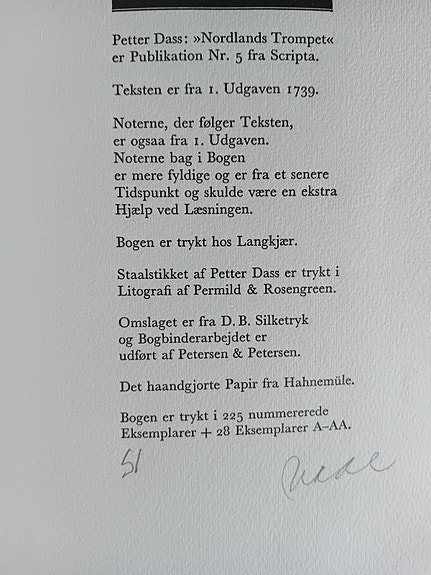 Petter Dass: »Nordlands Trompet«
er Publikation Nr. 5 fra Scripta.
Teksten er fra 1. Udgaven 1739.
Noterne, der følger Teksten,
er ogsaa fra 1. Udgaven.
Noterne bag i Bogen
er mere fyldige og er fra et senere
Tidspunkt og skulde være en ekstra
Hjælp ved Læsningen.
Bogen er trykt hos Langkjær.
Staalstikket af Petter Dass er trykt i
Litografi af Permild & Rosengreen.
Omslaget er fra D. B. Silketryk
og Bogbinderarbejdet er
udført af Petersen & Petersen.
Det haandgjorte Papir fra Hahnemüle.
Bogen er trykt i 225 nummererede
Eksemplarer + 28 Eksemplarer A–AA.
51